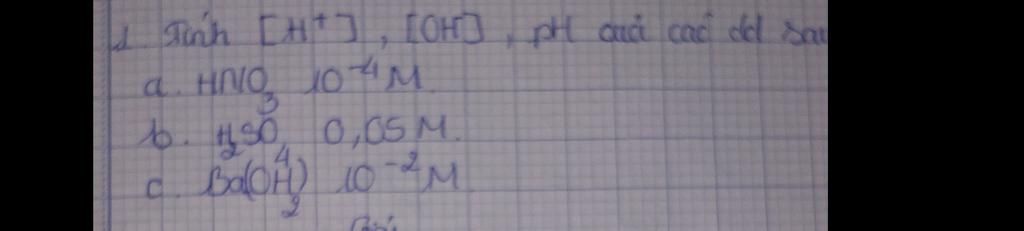 1 Tính [H⁺], [OH], pH của các dd sau
a. HNO₃ 10⁻⁴M.
b. H₂SO₄ 0,05M.
c. Ba(OH)₂ 10⁻²M